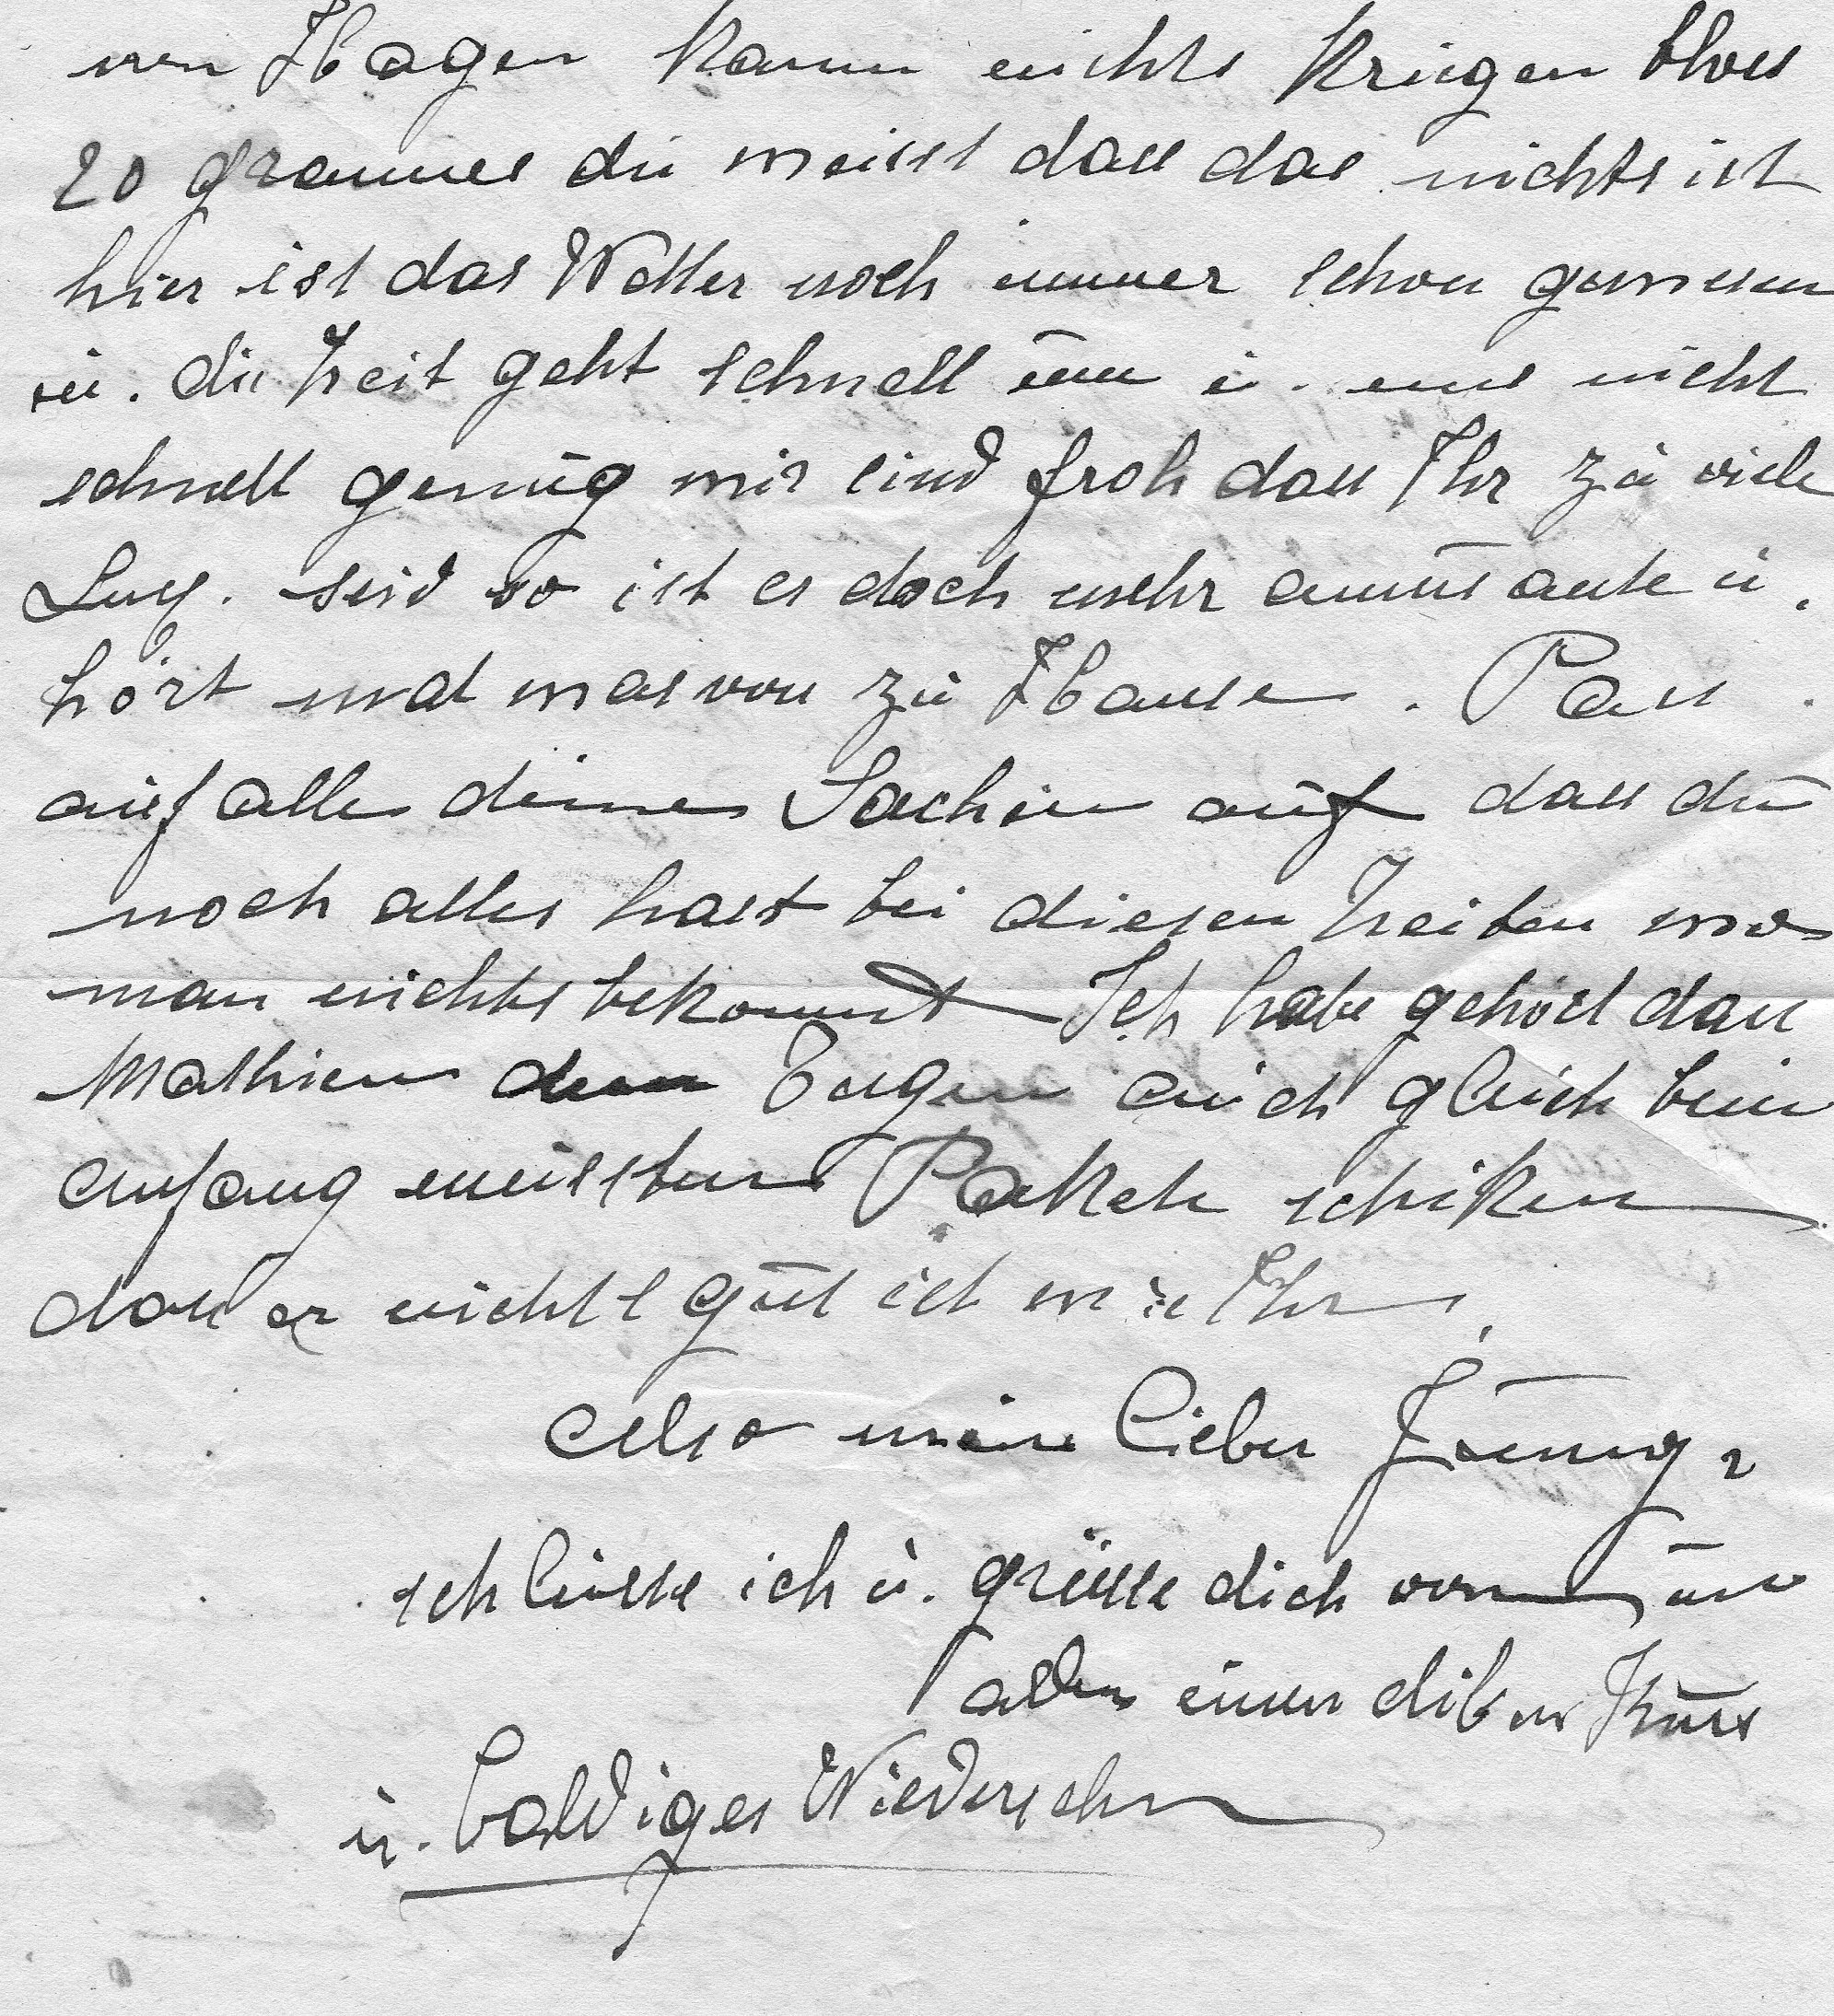 von Hagen kann nichts kriegen blos
20 grammes du weisst dass das nichts ist
hier ist das Wetter noch immer schon gewesen
u. die Zeit geht schnell um u. uns nicht
schnell genug wir sind froh dass Ihr zu viele
Lux. seid so ist es doch mehr amusante u.
hört mal was von zu Hause. Pass
auf alle deine Sachen auf dass du
noch alles hast bei diesen Zeiten wo
man nichts bekommt Ich habe gehört dass
Mathieu dem Eugen auch gleich beim
anfang meissten Pakete schiken
dass er nicht gut ist wie Ihr.
Also mein lieber Jung
schliesse ich u. grüsse dich von uns
allen einen diken Kuss
u. baldiges Wiedersehn